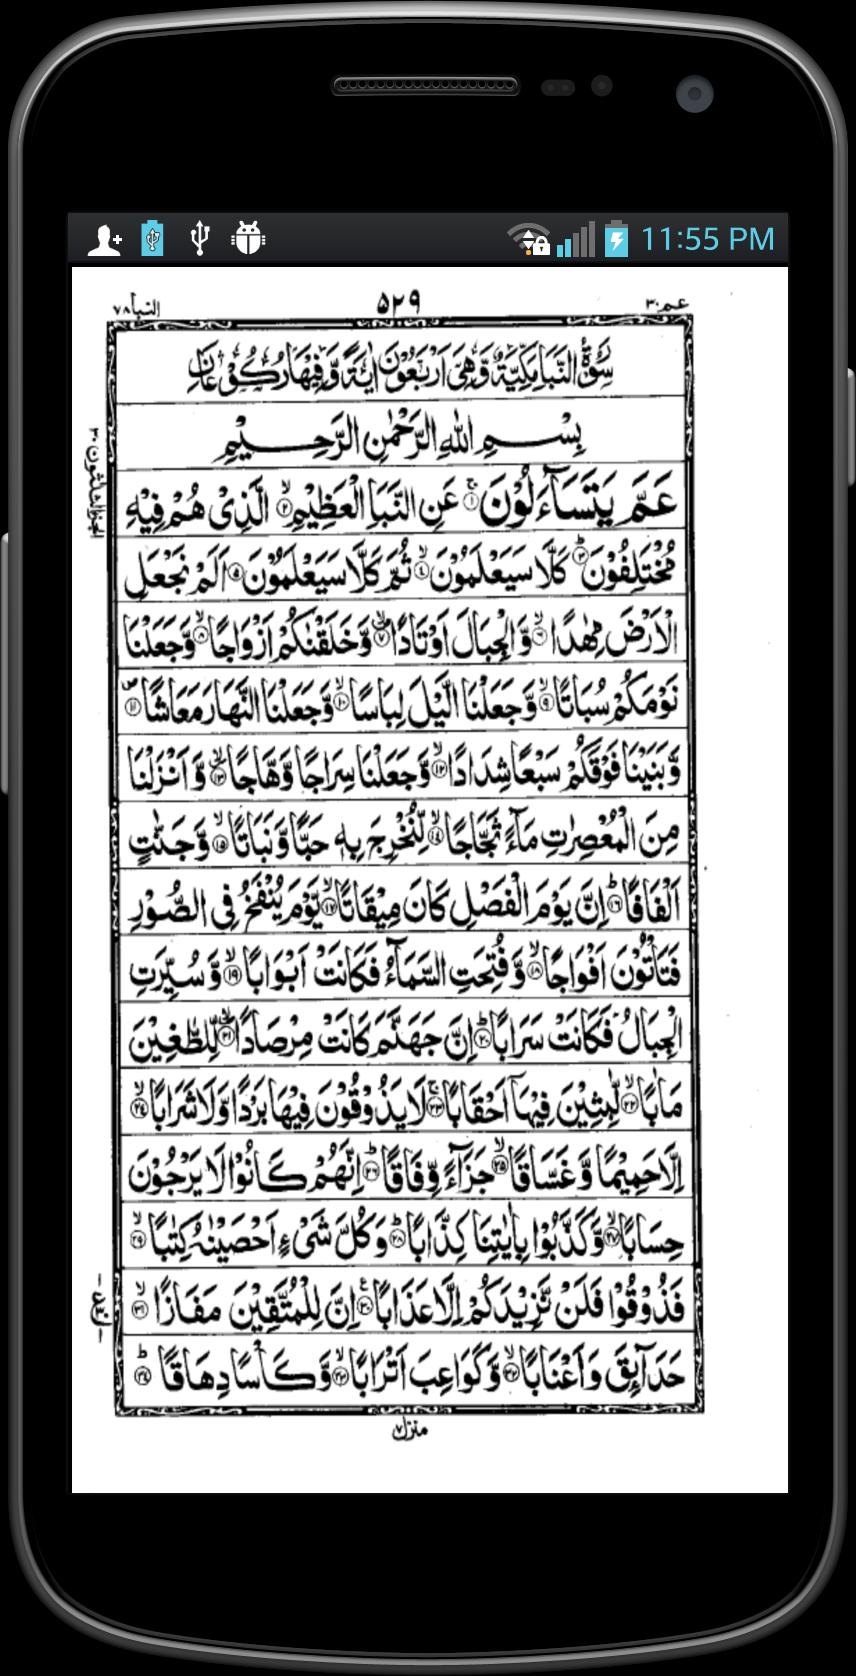 11:55 PM
عم ٣٠
۵۲۹
النبا ٧٨
سُوْرَةُ النَّبَاِ مَكِّيَّةٌ وَّهِيَ اَرْبَعُوْنَ اٰيَةً وَّفِيْهَا رُكُوْعَانِ
بِسْمِ اللّٰهِ الرَّحْمٰنِ الرَّحِيْمِ
عَمَّ يَتَسَآءَلُوْنَ ۚ۝۱ عَنِ النَّبَاِ الْعَظِيْمِ ۙ۝۲ الَّذِيْ هُمْ فِيْهِ
مُخْتَلِفُوْنَ ؕ۝۳ كَلَّا سَيَعْلَمُوْنَ ۙ۝۴ ثُمَّ كَلَّا سَيَعْلَمُوْنَ ۝۵ اَلَمْ نَجْعَلِ
الْاَرْضَ مِهٰدًا ۙ۝۶ وَّالْجِبَالَ اَوْتَادًا ۪ۙ۝۷ وَّخَلَقْنٰكُمْ اَزْوَاجًا ۙ۝۸ وَّجَعَلْنَا
نَوْمَكُمْ سُبَاتًا ۙ۝۹ وَّجَعَلْنَا الَّيْلَ لِبَاسًا ۙ۝۱۰ وَّجَعَلْنَا النَّهَارَ مَعَاشًا ۪۝۱۱
وَّبَنَيْنَا فَوْقَكُمْ سَبْعًا شِدَادًا ۙ۝۱۲ وَّجَعَلْنَا سِرَاجًا وَّهَّاجًا ۪ۙ۝۱۳ وَّاَنْزَلْنَا
مِنَ الْمُعْصِرٰتِ مَآءً ثَجَّاجًا ۙ۝۱۴ لِّنُخْرِجَ بِهٖ حَبًّا وَّنَبَاتًا ۙ۝۱۵ وَّجَنّٰتٍ
اَلْفَافًا ؕ۝۱۶ اِنَّ يَوْمَ الْفَصْلِ كَانَ مِيْقَاتًا ۙ۝۱۷ يَّوْمَ يُنْفَخُ فِي الصُّوْرِ
فَتَاْتُوْنَ اَفْوَاجًا ۙ۝۱۸ وَّفُتِحَتِ السَّمَآءُ فَكَانَتْ اَبْوَابًا ۙ۝۱۹ وَّسُيِّرَتِ
الْجِبَالُ فَكَانَتْ سَرَابًا ؕ۝۲۰ اِنَّ جَهَنَّمَ كَانَتْ مِرْصَادًا ۪ۙ۝۲۱ لِّلطَّغِيْنَ
مَاٰبًا ۙ۝۲۲ لّٰبِثِيْنَ فِيْهَآ اَحْقَابًا ۚ۝۲۳ لَا يَذُوْقُوْنَ فِيْهَا بَرْدًا وَّلَا شَرَابًا ۙ۝۲۴
اِلَّا حَمِيْمًا وَّغَسَّاقًا ۙ۝۲۵ جَزَآءً وِّفَاقًا ؕ۝۲۶ اِنَّهُمْ كَانُوْا لَا يَرْجُوْنَ
حِسَابًا ۙ۝۲۷ وَّكَذَّبُوْا بِاٰيٰتِنَا كِذَّابًا ؕ۝۲۸ وَكُلَّ شَيْءٍ اَحْصَيْنٰهُ كِتٰبًا ۙ۝۲۹
فَذُوْقُوْا فَلَنْ نَّزِيْدَكُمْ اِلَّا عَذَابًا ۠۝۳۰ اِنَّ لِلْمُتَّقِيْنَ مَفَازًا ۙ۝۳۱
حَدَآئِقَ وَاَعْنَابًا ۙ۝۳۲ وَّكَوَاعِبَ اَتْرَابًا ۙ۝۳۳ وَّكَاْسًا دِهَاقًا ؕ۝۳۴
منزل ۷